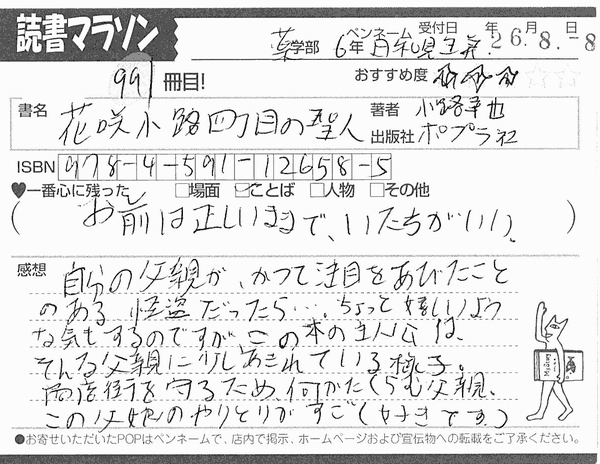 読書マラソン
薬学部 6年 ペンネーム 受付日 年 月 日
26.8.-8
991冊目! おすすめ度 ☆☆☆☆☆
書名 花咲小路四丁目の聖人 著者 小路幸也
出版社 ポプラ社
ISBN 978-4-591-12658-5
♥一番心に残った □場面 ☑ことば □人物 □その他
(お前は正しいままで、いたらがいい。)
感想 自分の父親が、かつて注目をあびたこと
のある怪盗だったら…、ちょっと嬉しいよう
な気もするのですが、この本の主人公は、
そんな父親に少しあきれている様子。
商店街を守るため、何かたくらむ父親、
この父娘のやりとりがすごく好きです。
●お寄せいただいたPOPはペンネームで、店内で掲示、ホームページおよび宣伝物への転載をご了承ください。